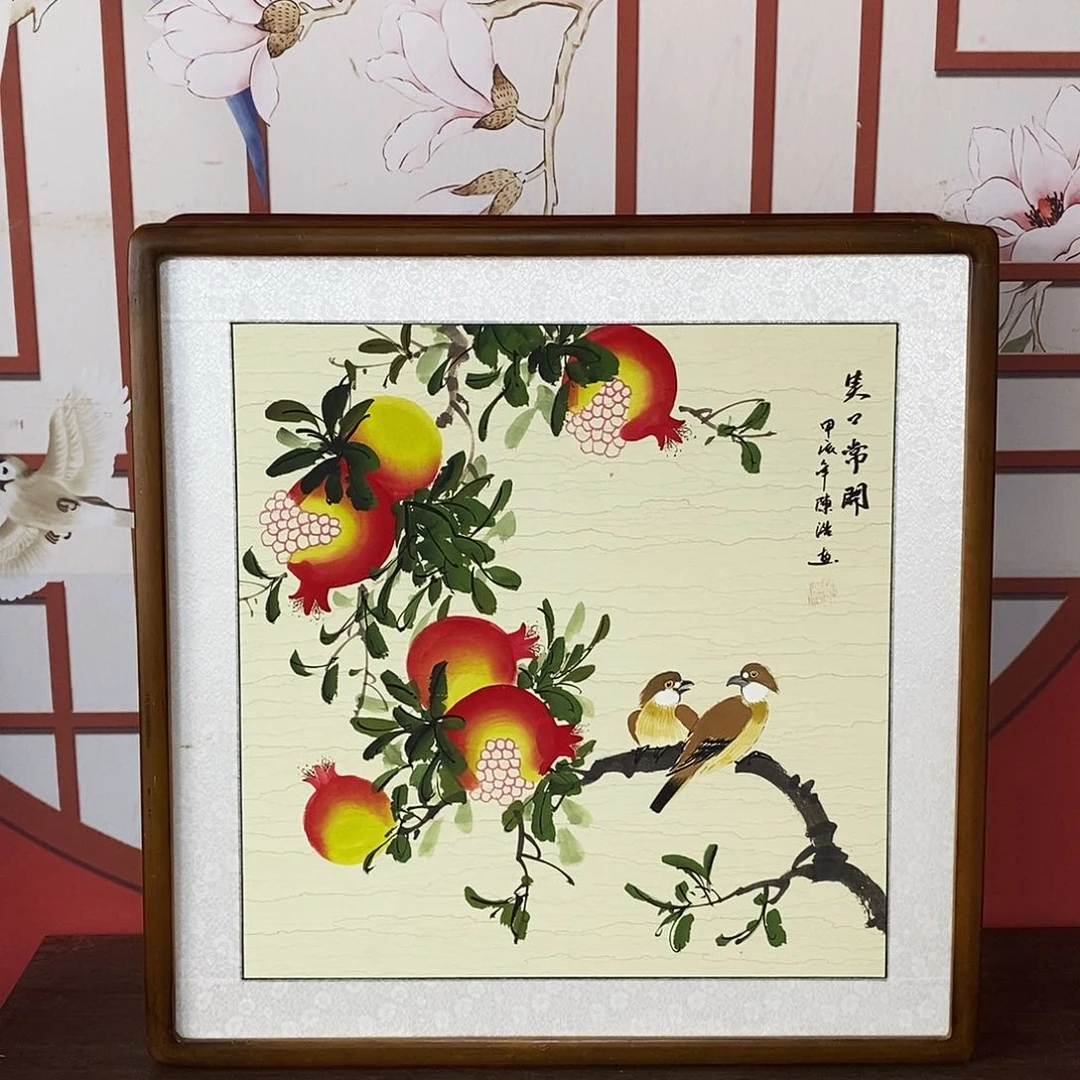 笑口常開
甲辰年陳浩画